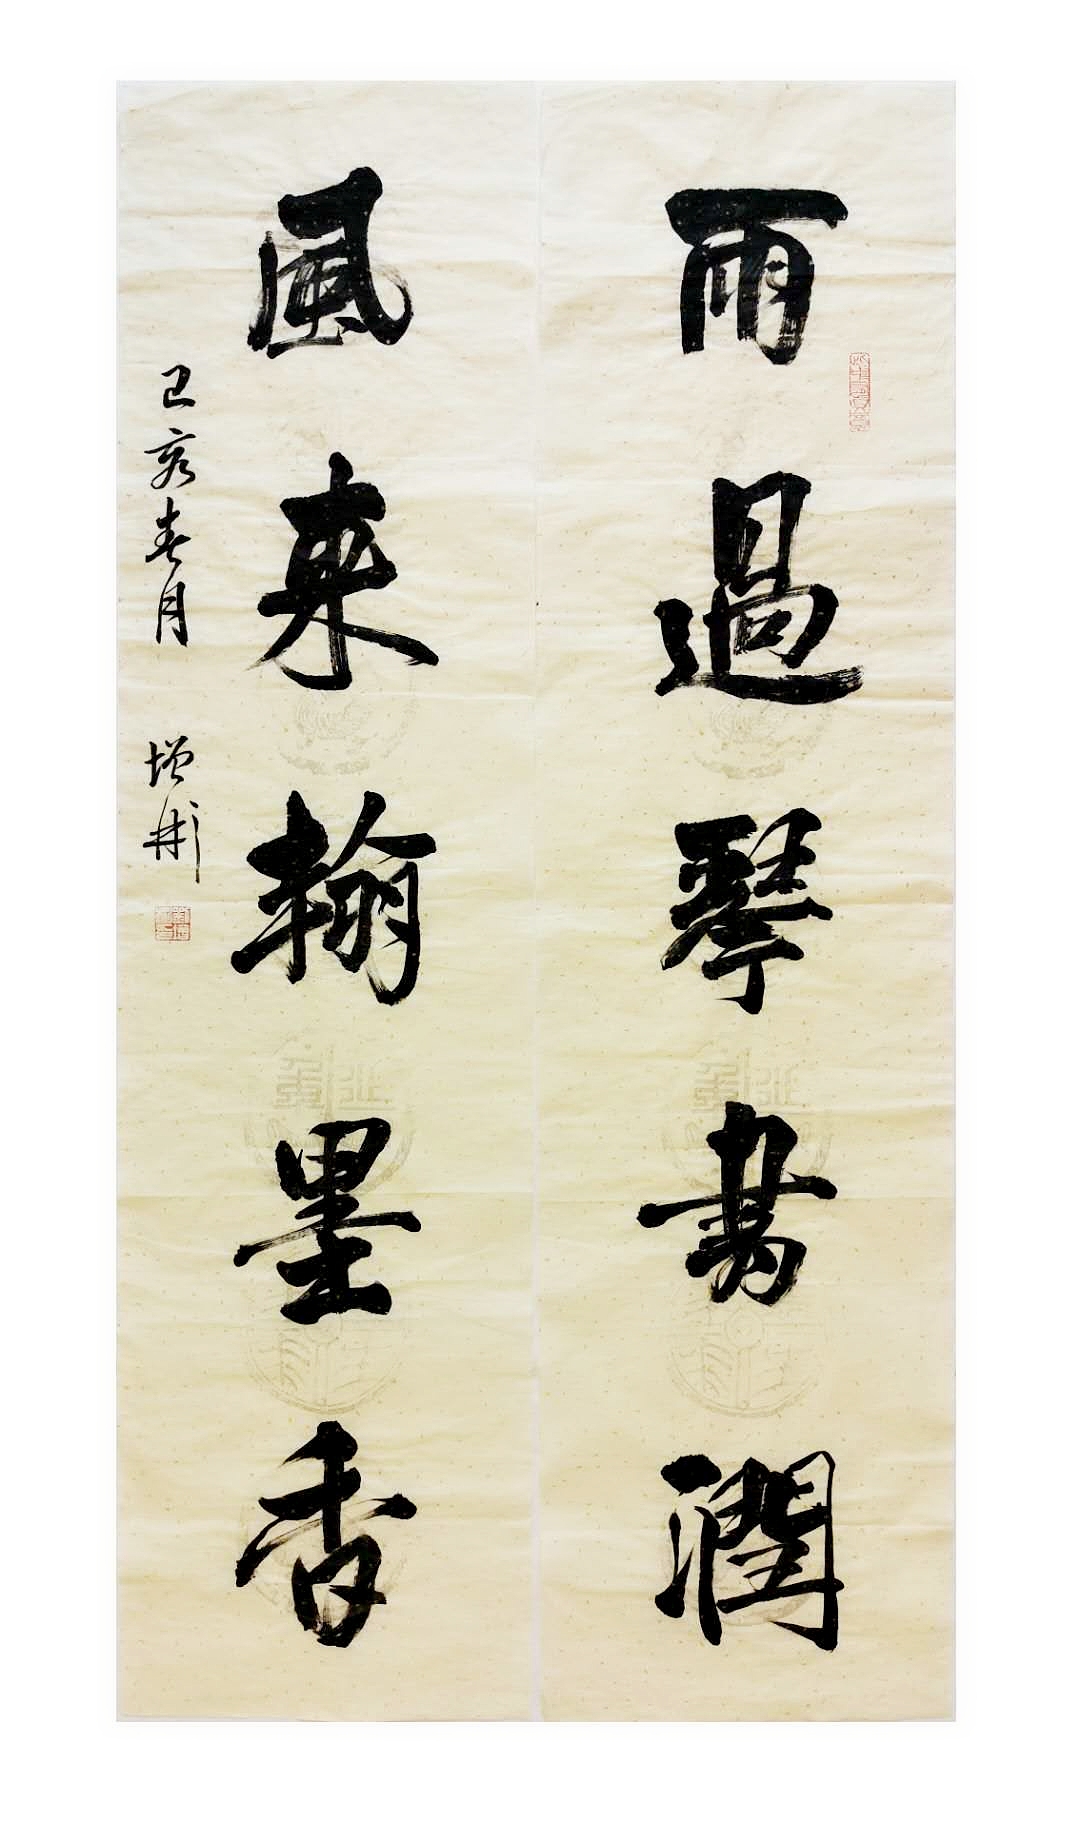 雨過琴書潤
風来翰墨香
己亥春月 增彬